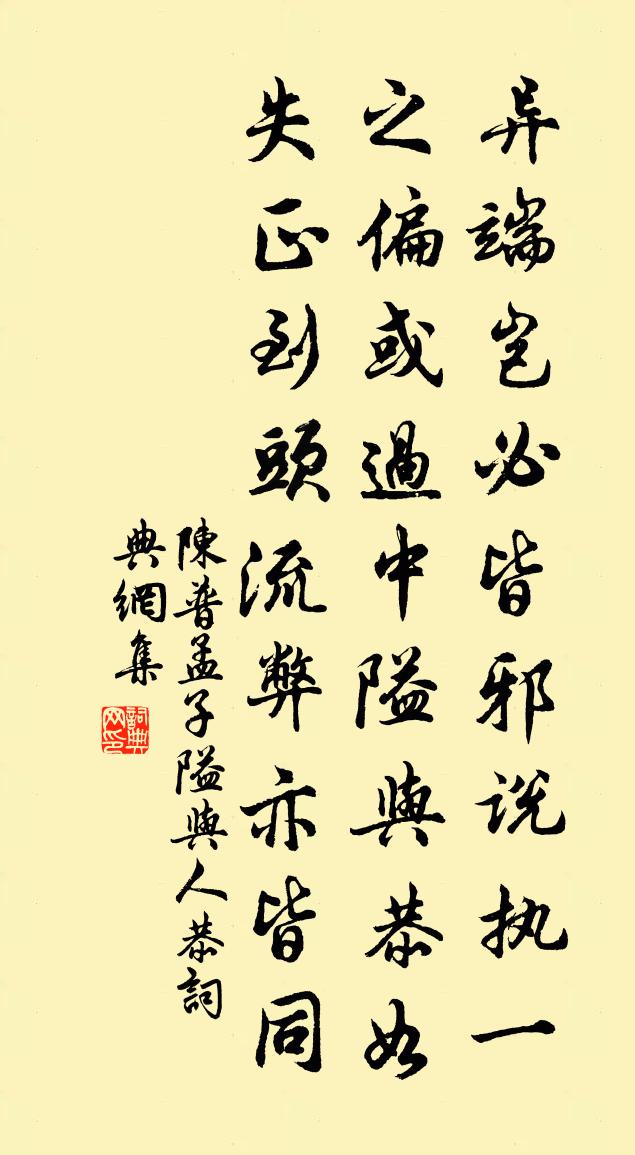 异端岂必皆邪说执一
之偏或過中隘與恭如
失正到頭流弊亦皆同
陳普孟子隘與人恭詞
典網集
詞典网印